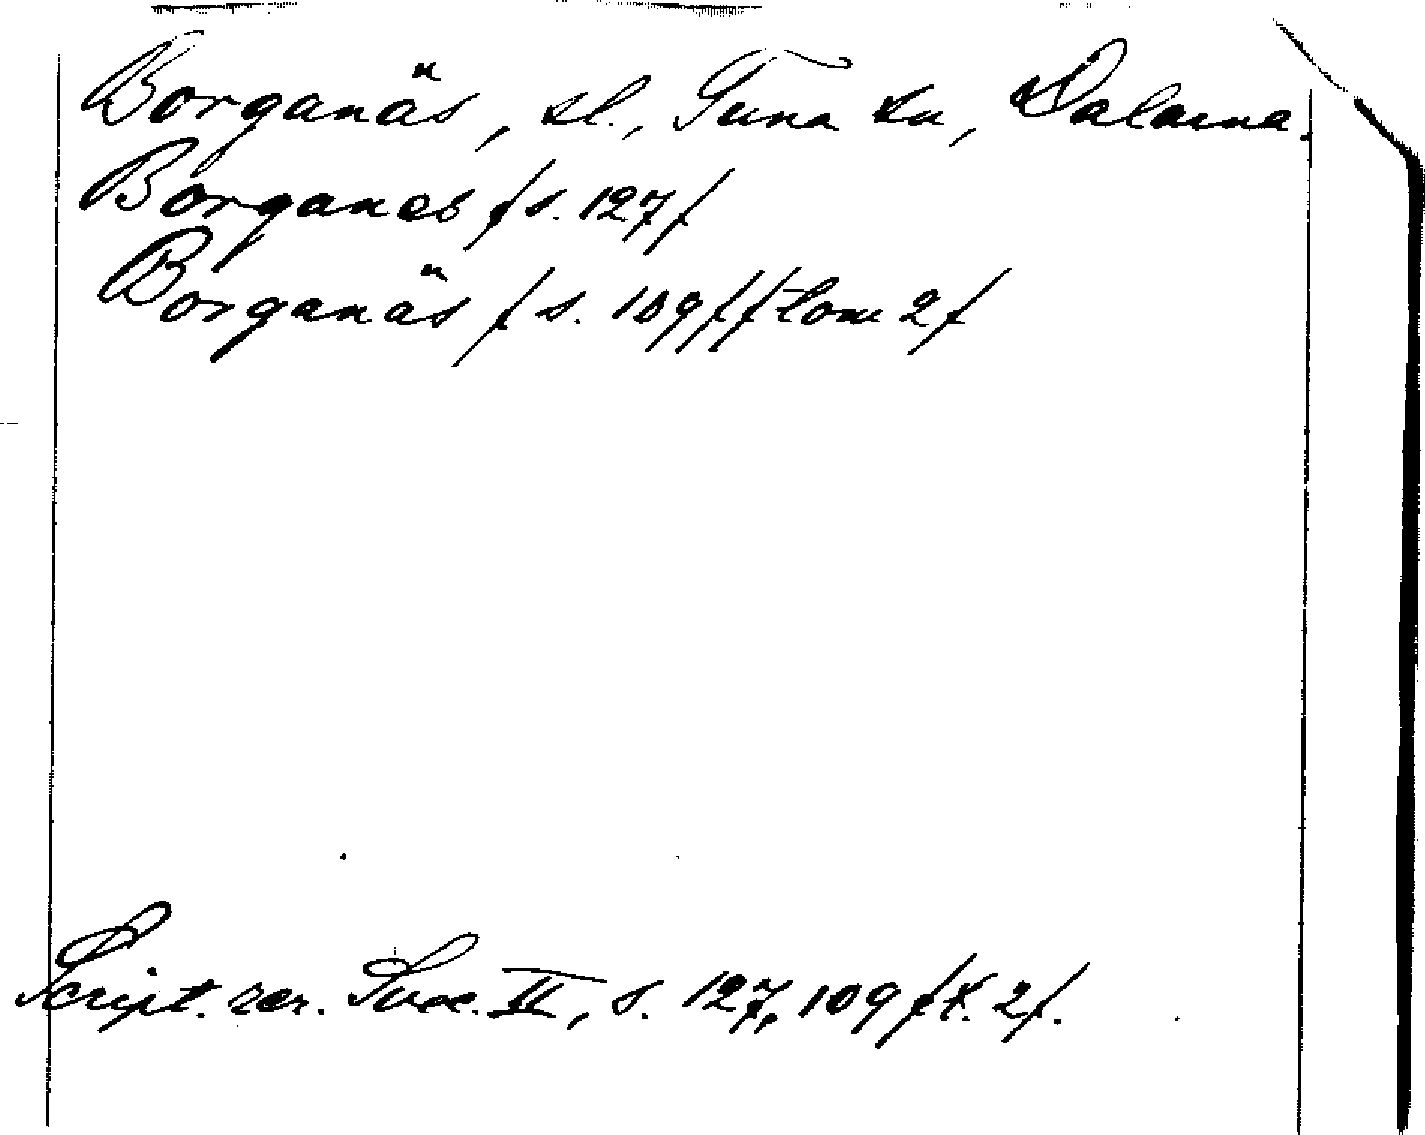 Borganäs, sl., Tuna sn, Dalarna.
Borganes /s. 127/
Borganäs /s. 109//tom 2/
Script. rer. Svec. II, s. 127, 109 /t. 2/.